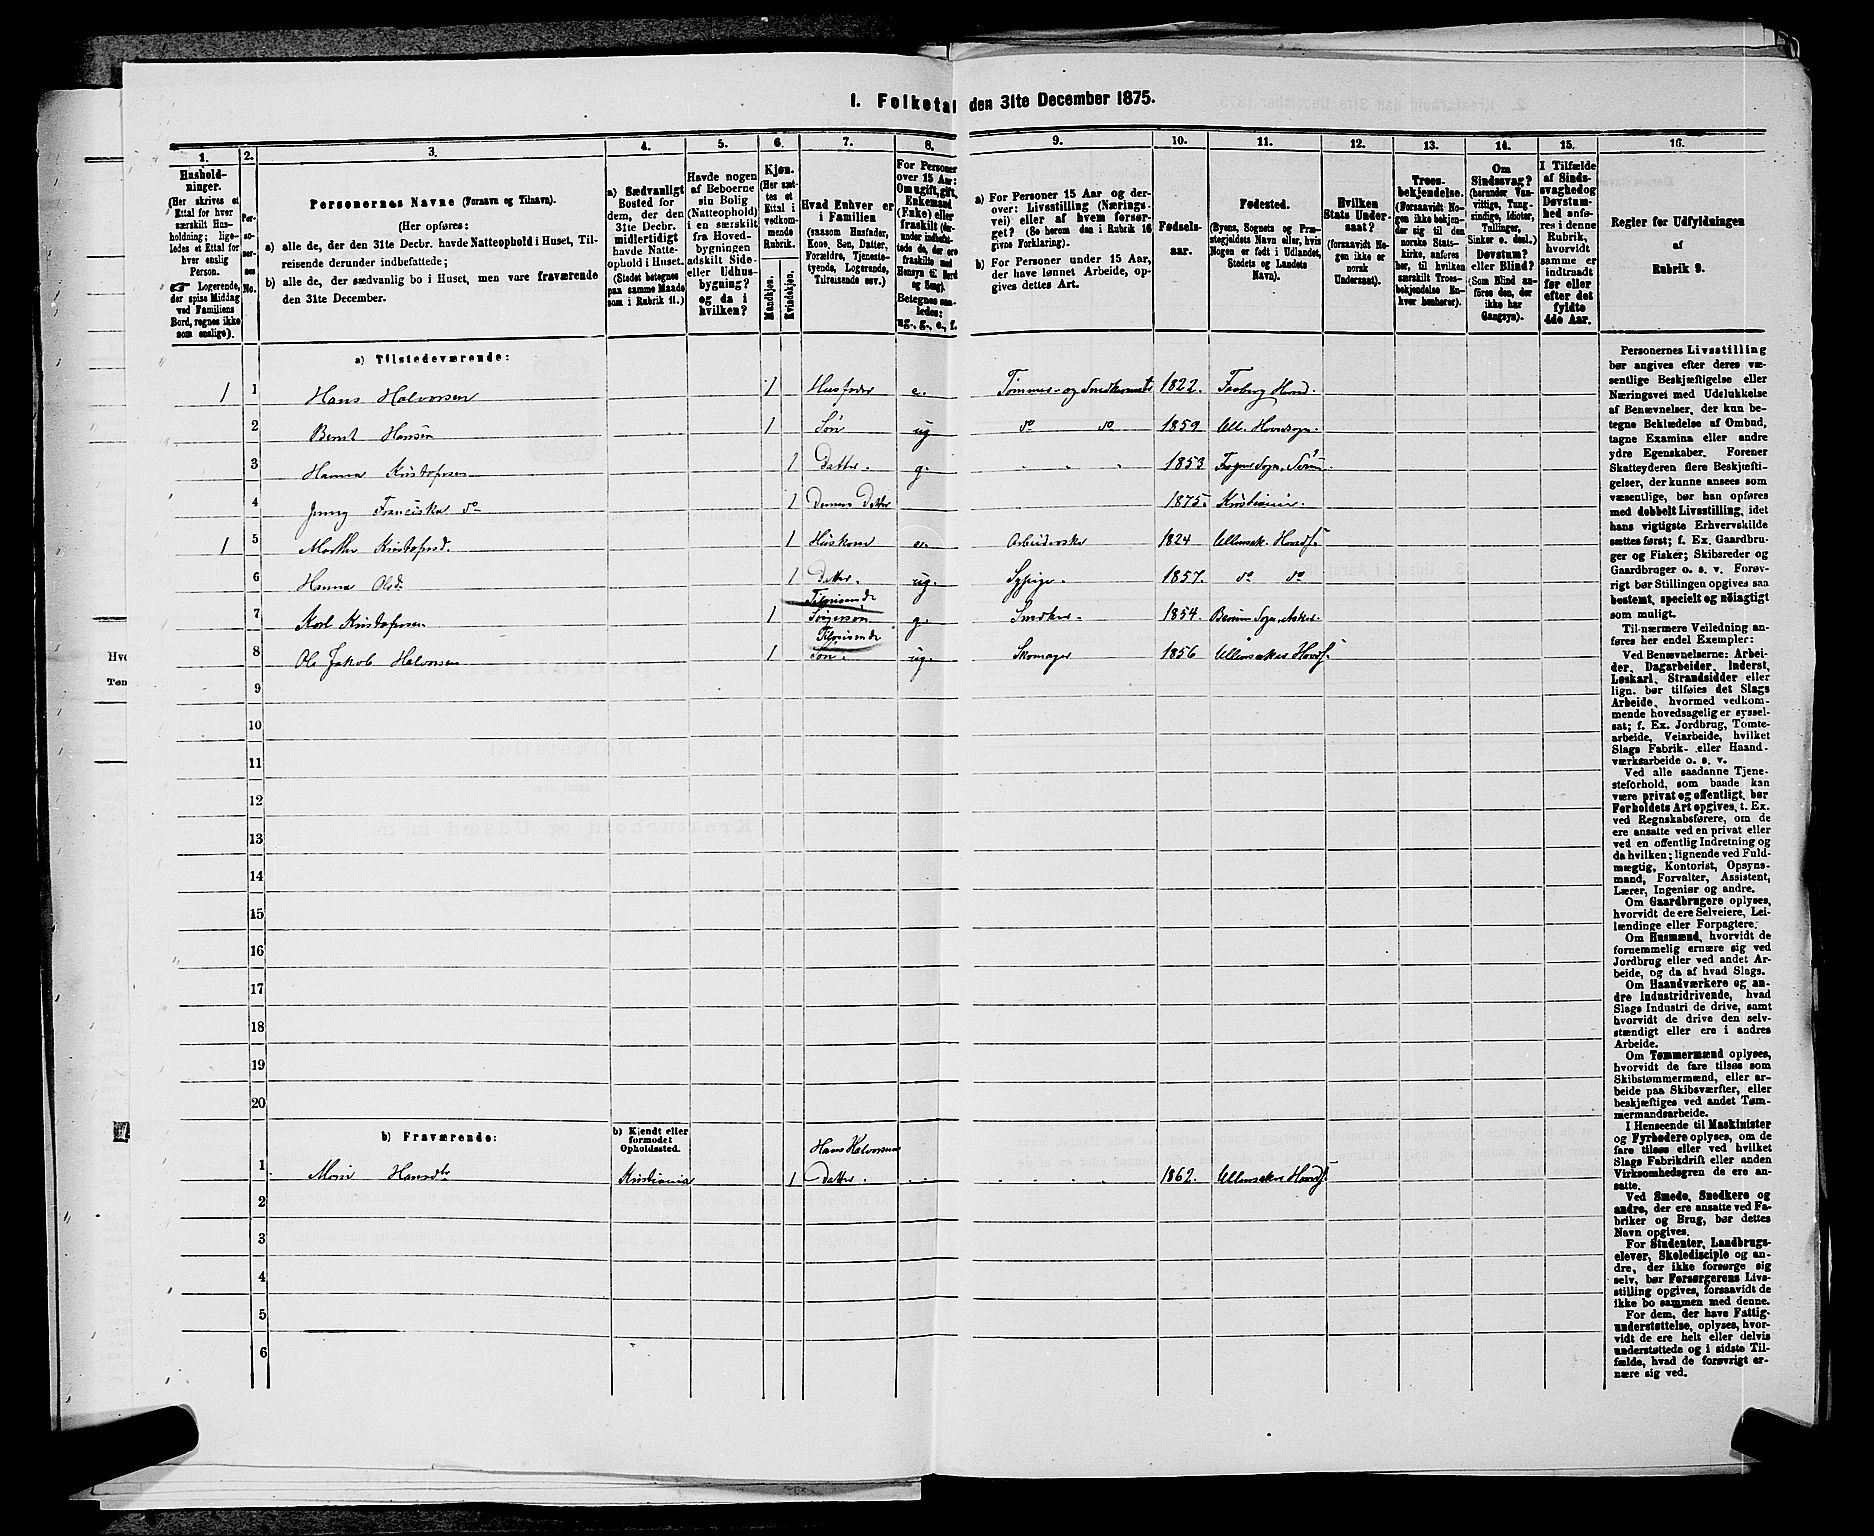 1. Folketal den 31te December 1875.
1.
Hushold-
ninger.
(Her skrives et
Ettal for hver
særskilt Hus-
holdning; lige-
ledes et Ettal for
hver enslig
Person.
☞ Logerende,
der spise Middag
ved Familiens
Bord, regnes ikke
som enslige).
2.
Per-
so-
ner-
nes
No.
3.
Personernes Navne (Fornavn og Tilnavn).
(Her opføres:
a) alle de, der den 31te Decbr. havde Natteophold i Huset, Til-
reisende derunder indbefattede;
b) alle de, der sædvanlig bo i Huset, men vare fraværende
den 31te December.
4.
a) Sædvanligt
Bosted for
dem, der den
31te Decbr.
midlertidigt
havde Natte-
ophold i Huset.
(Stedet betegnes
paa samme Maade
som i Rubrik 11.)
5.
Havde nogen
af Beboerne
sin Bolig
(Natteophold)
i en særskilt
fra Hoved-
bygningen
adskilt Side-
eller Udhus-
bygning?
og da i
hvilken?
6.
Kjøn.
(Her sæt-
tes et
Ettal i
vedkom-
mende
Rubrik.
Mandkjøn.
Kvindekjøn.
7.
Hvad Enhver er
i Familien
(saasom Husfader,
Kone, Søn, Datter,
Forældre, Tjeneste-
tyende, Logerende,
Tilreisende osv.)
8.
For Personer
over 15 Aar:
Om ugift, gift,
Enkemand
(Enke) eller
fraskilt
Betegnes saa-
ledes:
ug., g., e., f.
9.
a) For Personer 15 Aar og der-
over: Livsstilling (Nærings-
vei) eller af hvem forsør-
get? (Se herom den i Rubrik 16
givne Forklaring).
b) For Personer under 15 Aar,
der have lønnet Arbeide, op-
gives dettes Art.
10.
Fødsels-
aar.
11.
Fødested.
(Byens, Sognets og Præ-
stegjeldets Navn eller, hvis
Nogen er født i Udlandet,
Stedets og Landets
Navn).
12.
Hvilken
Stats Under-
saat?
(forsaavidt No-
gen ikke er
norsk
Undersaat).
13.
Troes-
bekjendelse.
(Forsaavidt No-
gen ikke bekjen-
der sig til den
norske Stats-
kirke, anføres
her, til hvilken
særskilt Troes-
bekjendelse En-
hver henhører).
14.
Om
Sindssvag?
(herunder Van-
vittige, Tung-
sindige, Idioter,
Tullinger,
Sinker o. desl.)
Døvstum?
eller Blind?
(Som Blind an-
føres den, der
ikke har
Gangsyn).
15.
I Tilfælde
af Sinds-
svaghed og
Døvstum-
hed anfø-
res i denne
Rubrik,
hvorvidt
samme er
indtraadt
før eller
efter det
fyldte
4de Aar.
16.
Regler for Udfyldningen
af
Rubrik 9.
a) Tilstedeværende:
1 1 Hans Halvorsen 1 Husfader e. Tømmer- og Snedkermester 1822. Faaberg Hovd.
2 Bernt Hansen 1 Søn ug do do 1859 Ull. Hovedsogn.
3 Hanna Kristofersen 1 Datter. g. 1853
4 Jenny Franciska do 1 Dennes Datter 1875. Kristiania.
1 5 Marthe Kristofersd. 1 Huskone e. Arbeiderske 1824 Ullensak. Hovds.
6 Hanna Olsd. 1 Datter. ug. Sypige. 1857. do do
Tilreisende
7 Karl Kristofersen 1 g. Snedker 1854. Bærums Sogn, Asker.
Tilreisende
8 Ole Jakob Halvorsen 1 Søn. ug. Skomager 1856 Ullensaker Hovds.
9
10
11
12
13
14
15
16
17
18
19
20
b) Fraværende:
b) Kjendt eller
formodet
Opholdssted.
Hans Halvorsens
1 Marie Hansdtr Kristiania 1 Datter. 1862. Ullensaker Hovds.
2
3
4
5
6
Personernes Livsstilling
bør angives efter deres væ-
sentlige Beskjæftigelse eller
Næringsvei med Udelukkelse
af Benævnelser, der kun be-
tegne Beklædelse af Ombud,
tagne Examina eller andre
ydre Egenskaber. Forener
Skatteyderen flere Beskjæfti-
gelser, der kunne ansees som
væsentlige, bør han opføres
med dobbelt Livsstilling, idet
hans vigtigste Erhvervskilde
sættes først; f. Ex. Gaardbru-
ger og Fisker; Skibsreder og
Gaardbruger o. s. v. Forøv-
rigt bør Stillingen opgives saa
bestemt, specielt og nøiagtigt
som muligt.
Til nærmere Veiledning an-
føres her endel Exempler:
Ved Benævnelserne: Arbei-
der, Dagarbeider, Inderst,
Løskarl, Strandsidder eller
lign. bør tilføies det Slags
Arbeide, hvormed vedkom-
mende hovedsagelig er syssel-
sat; f. Ex. Jordbrug, Tomte-
arbeide, Veiarbeide, hvilket
Slags Fabrik- eller Haand-
værksarbeide o. s. v.
Ved alle saadanne Tjene-
steforhold, som baade kan
være privat og offentligt, bør
Forholdets Art opgives, t. Ex.
ved Regnskabsførere, om de
ere ansatte ved en privat eller
ved en offentlig Indretning og
da hvilken; lignende ved Fuld-
mægtig, Kontorist, Opsyns-
mand, Forvalter, Assistent,
Lærer, Ingeniør og andre.
Om Gaardbrugere oplyses,
hvorvidt de ere Selveiere, Lei-
lændinge eller Forpagtere.
Om Husmænd, hvorvidt de
fornemmelig ernære sig ved
Jordbrug eller ved andet Ar-
beide, og da af hvad Slags.
Om Haandværkere og an-
dre Industridrivende, hvad
Slags Industri de drive, samt
hvorvidt de drive den selv-
stændigt eller ere i andres
Arbeide.
Om Tømmermænd oplyses,
hvorvidt de fare tilsøs som
Skibstømmermænd, eller ar-
beide paa Skibsværfter, eller
beskjæftiges ved andet Tøm-
mermandsarbeide.
I Henseende til Maskinister
og Fyrbødere oplyses, om de
fare tilsøs eller ved hvilket
Slags Fabrikdrift eller anden
Virksomhedsgren de ere an-
satte.
Ved Smede, Snedkere og
andre, der ere ansatte ved Fa-
briker og Brug, bør dettes
Navn opgives.
For Studenter, Landbrugs-
elever, Skoledisciple og an-
dre, der ikke forsørge sig
selv, bør Forsørgerens Livs-
stilling opgives, forsaavidt de
ikke bo sammen med denne.
For dem, der have Fattig-
understøttelse, oplyses, hvor-
vidt de ere helt eller delvis
understøttede og i sidste Til-
fælde, hvad de forøvrigt er-
nære sig ved.